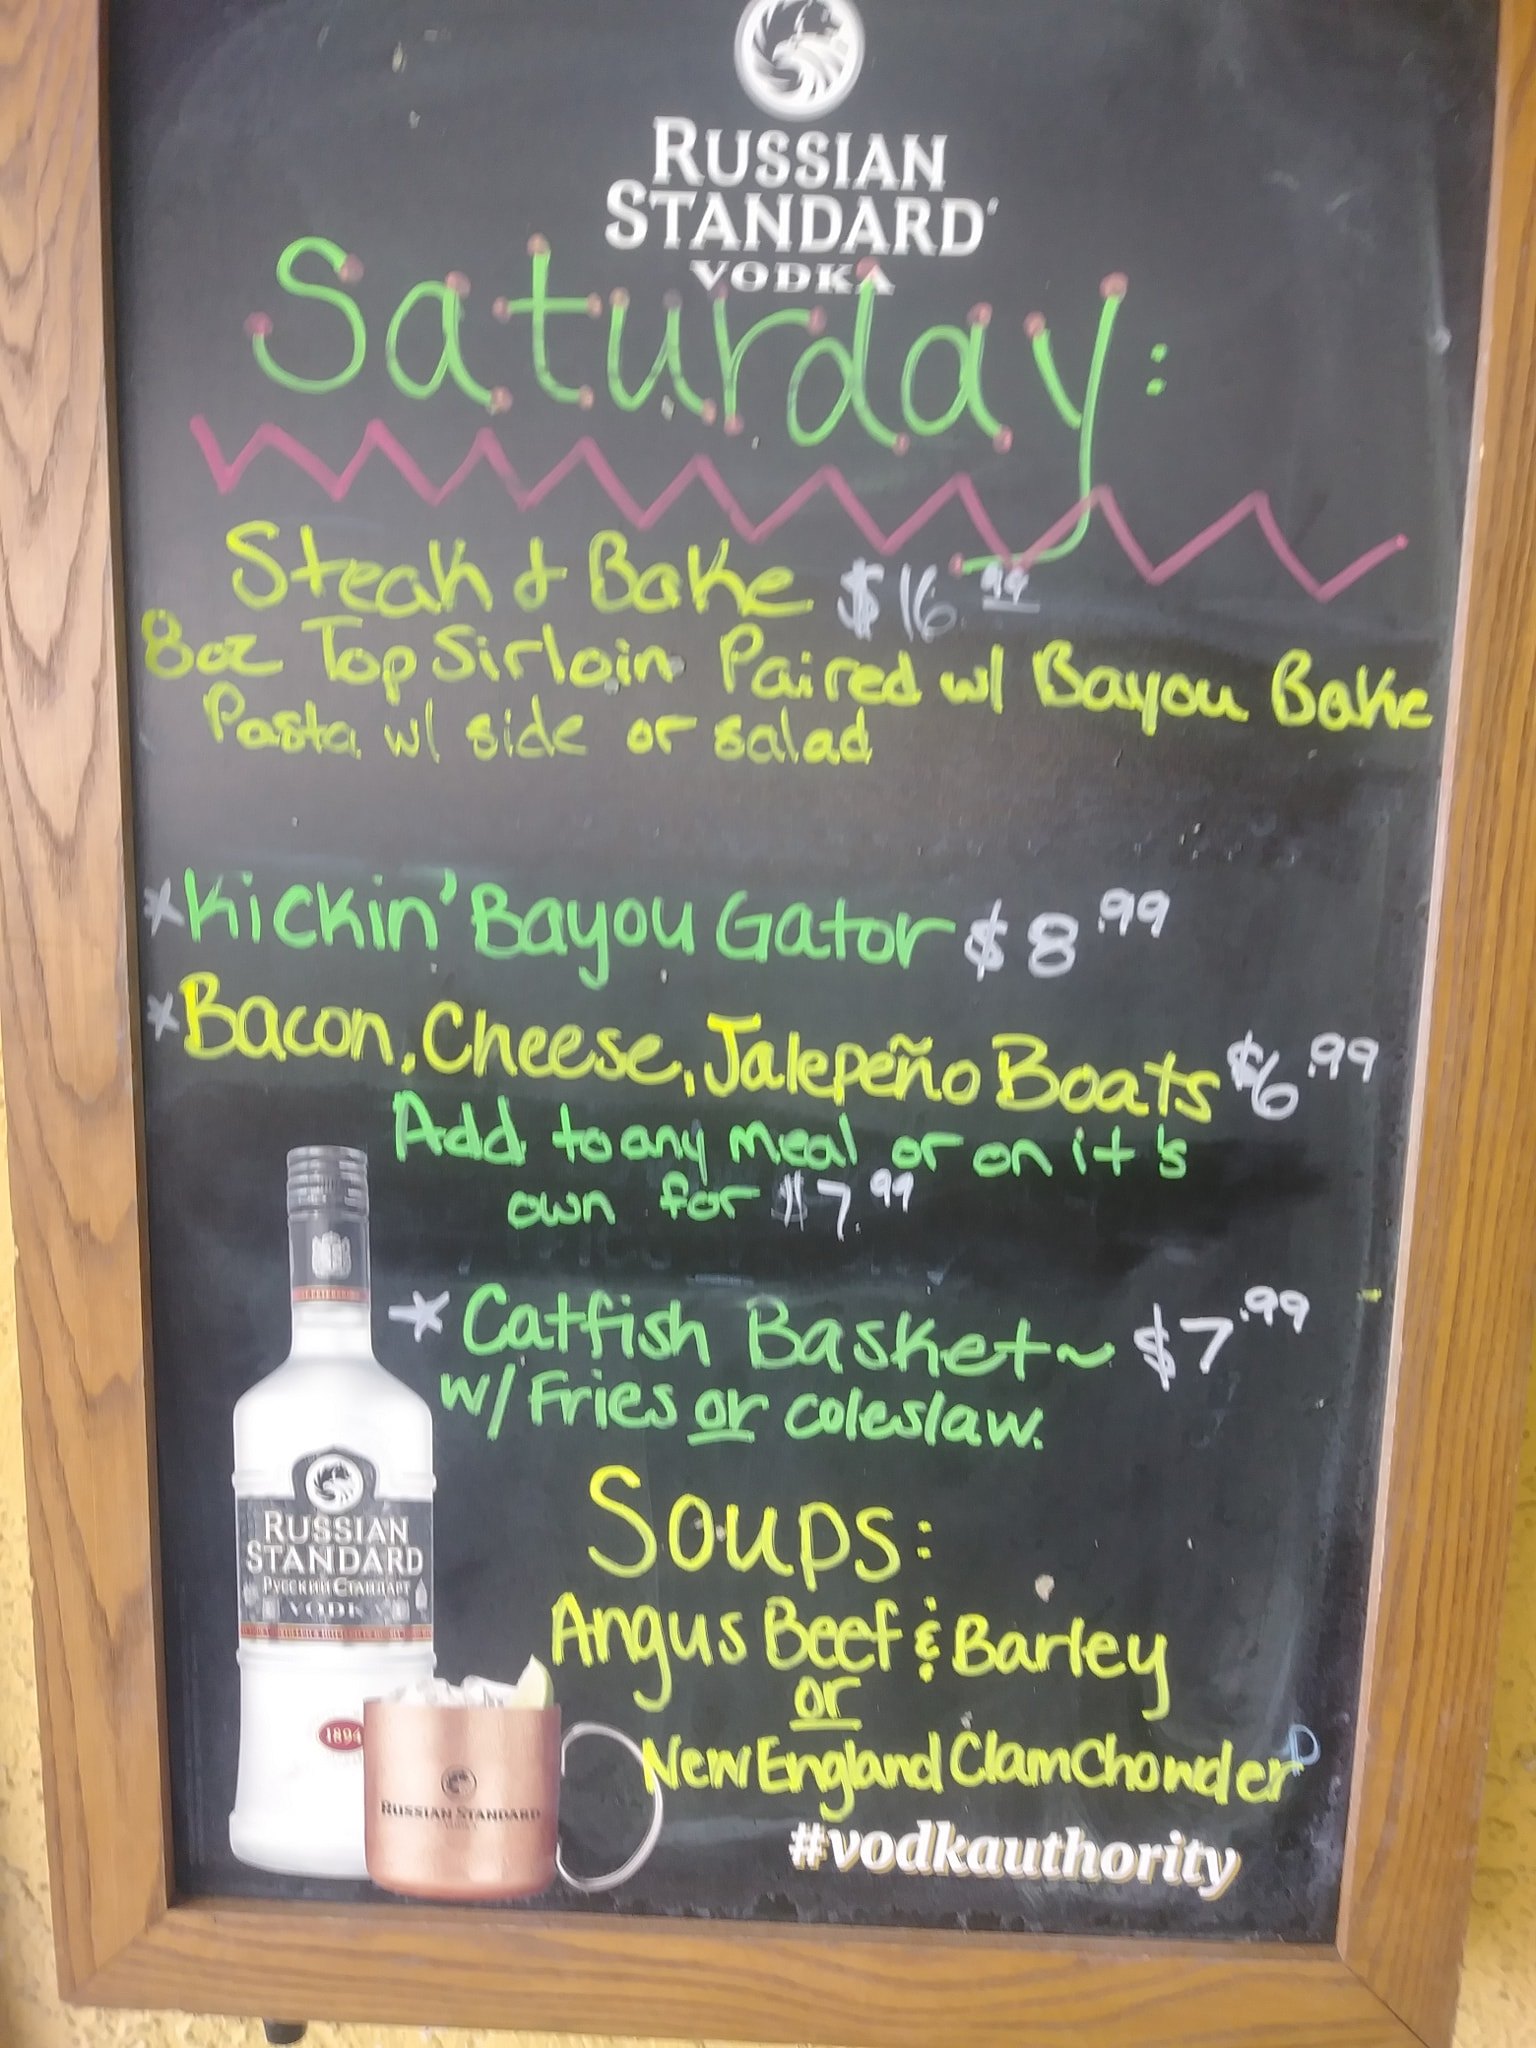 RUSSIAN
STANDARD
VODKA
Saturday:
Steak & Bake $16.99
8oz Top Sirloin Paired w/ Bayou Bake
Pasta w/ side or salad
*Kickin' Bayou Gator $8.99
*Bacon, Cheese, Jalepeño Boats $6.99
Add to any meal or on it's
own for $7.99
*Catfish Basket~ $7.99
w/ Fries or coleslaw.
Soups:
Angus Beef & Barley
or
New England Clam Chowder
#vodkauthority
RUSSIAN
STANDARD
РУССКИЙ СТАНДАРТ
VODKA
1894
RUSSIAN STANDARD
VODKA